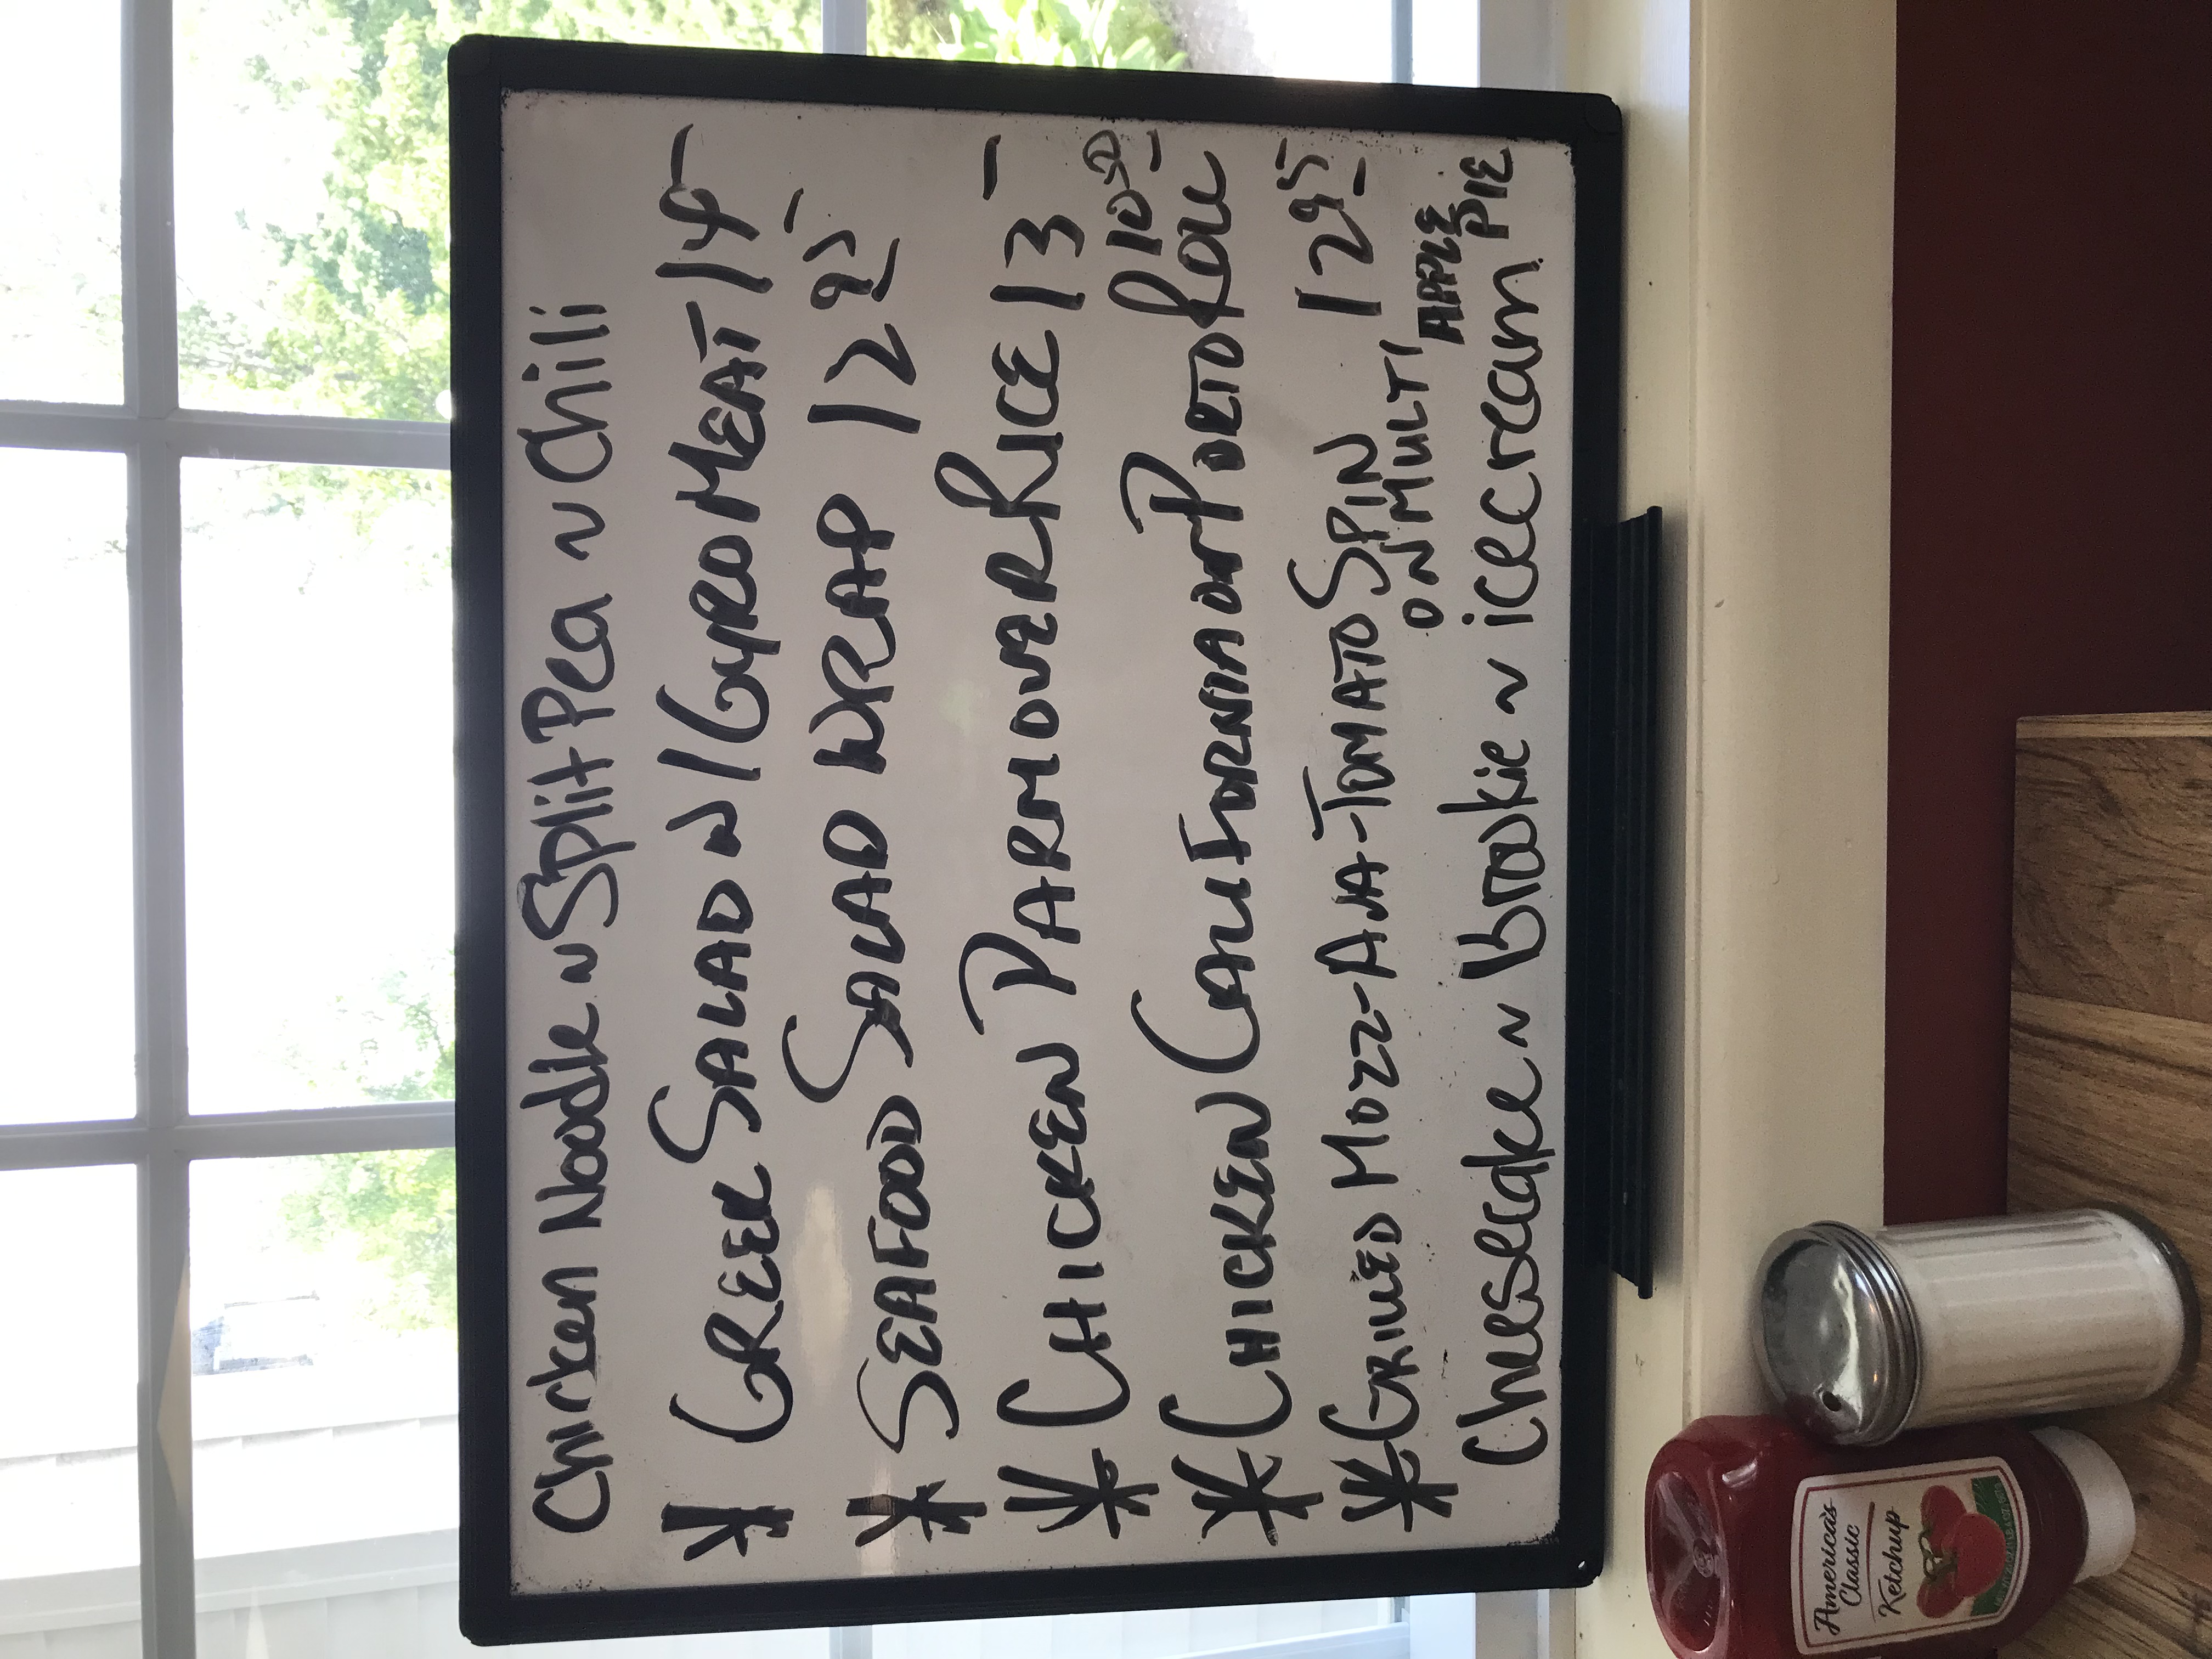 Chicken Noodle ~ Split Pea ~ Chili
* GREEK SALAD W/ GYRO MEAT 14-
* SEAFOOD SALAD WRAP 12 95
* CHICKEN PARM OVER RICE 13-
* CHICKEN CALIFORNIA ON PORTO ROLL 10 50
* GRILLED MOZZ-AVA-TOMATO SPIN 12 95
ON MULTI
APPLE PIE
Cheesecake ~ brookie ~ icecream
America's
Classic
Ketchup